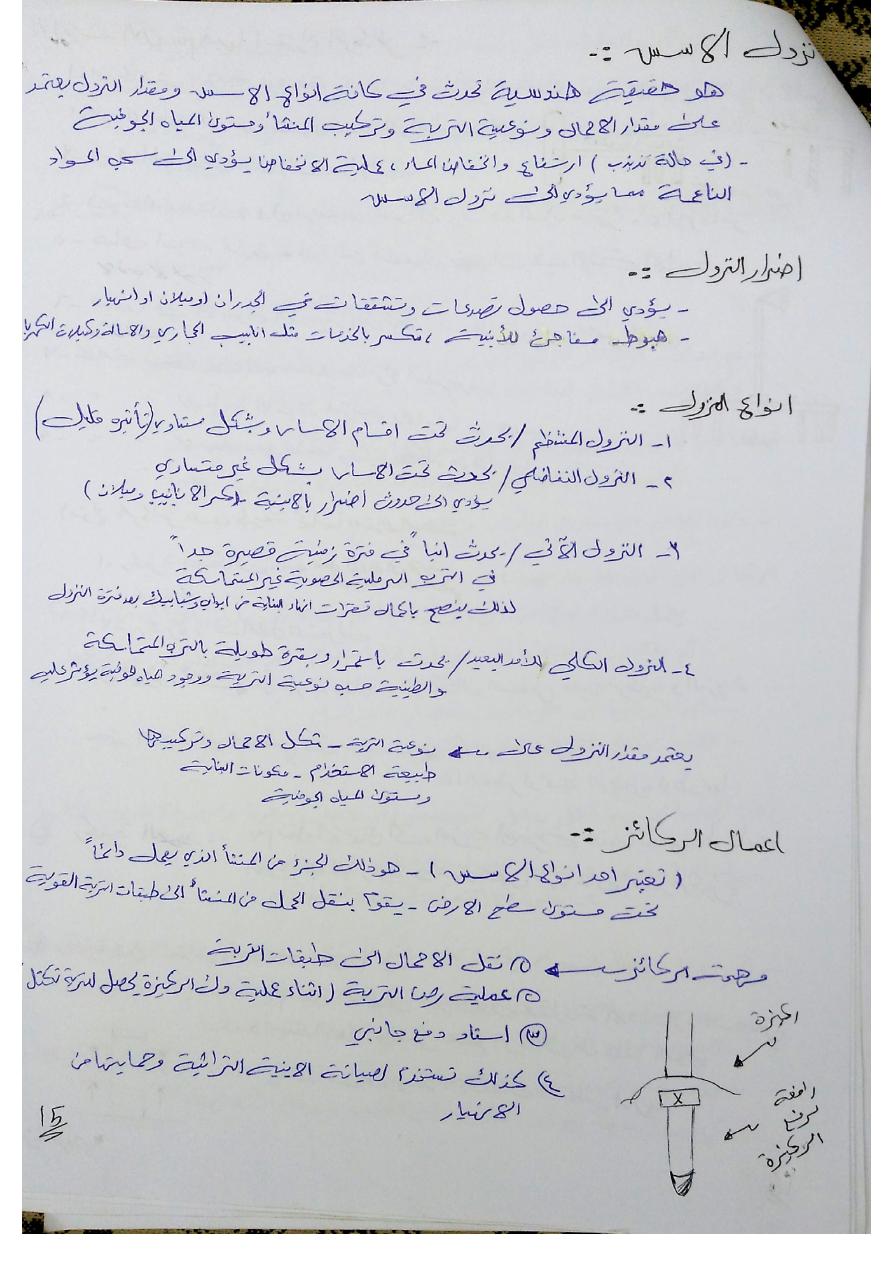 نزول الاسس :-
هو حقيقة هندسية تحدث في كافة انواع الاسس ومقدار النزول يعتمد
على مقدار الاحمال ونوعية التربة وتركيب المنشأ ومستوى المياه الجوفية
- (في حالة تذبذب) ارتفاع وانخفاض الماء ، عملية الانخفاض يؤدي الى سحب المواد
الناعمة مما يؤدي الى نزول الاسس
اضرار النزول :-
- يؤدي الى حصول تصدعات وتشققات في الجدران او ميلان او انهيار
- هبوط مفاجئ للأبنية ، تكسر بالخدمات مثل انابيب المجاري والاسالة وكيبلات الكهرباء
انواع النزول :-
١- النزول المنتظم / يحدث تحت اقسام الاساس وبشكل متساوي (تأثيره قليل)
٢- النزول التفاضلي / يحدث تحت الاساس بشكل غير متساوي
يؤدي الى حدوث اضرار بالابنية (كسر الانابيب وميلان)
٣- النزول الآني / يحدث انياً في فترة زمنية قصيرة جداً
في الترب الرملية الحصوية غير المتماسكة
لذلك ينصح باكمال فقرات انهاء البناية من ابواب وشبابيك بعد فترة النزول
٤- النزول الكلي للأمد البعيد / يحدث باستمرار وبفترة طويلة بالترب المتماسكة
والطينية حسب نوعية التربة ووجود مياه جوفية يؤثر عليه
يعتمد مقدار النزول على ← نوعية التربة - شكل الاحمال وتركيبها
طبيعة الاستخدام - مكونات البناية
ومستوى المياه الجوفية
اعمال الركائز :-
(تعتبر احد انواع الاسس) - هو ذلك الجزء من المنشأ الذي يعمل دائماً
تحت مستوى سطح الارض - يقوم بنقل الحمل من المنشأ الى طبقات التربة القوية
مهمة الركائز ← ١) نقل الاحمال الى طبقات التربة
٢) عملية رص التربة (اثناء عملية دك الركيزة يحصل للتربة تكتل
٣) اسناد دفع جانبي
٤) كذلك تستخدم لصيانة الابنية التراثية وحمايتها من
الانهيار
الركيزة
رافعة
لرفع
الركيزة
X
15